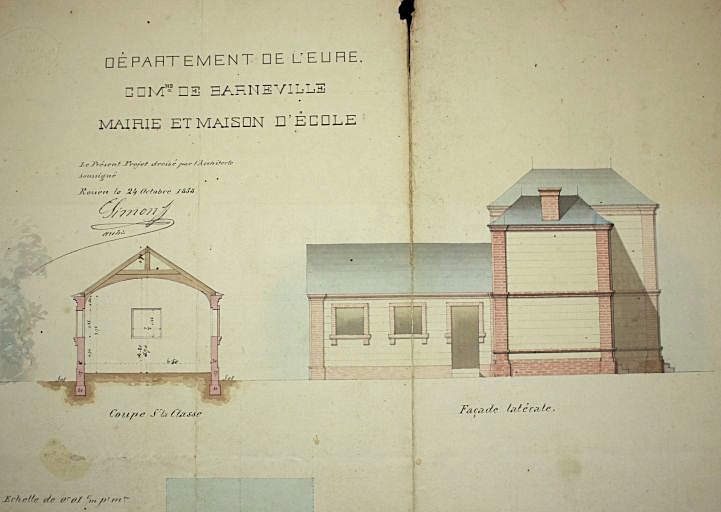 DÉPARTEMENT DE L'EURE.
COMNE DE BARNEVILLE
MAIRIE ET MAISON D'ÉCOLE
Le Présent Projet dressé par l'Architecte
soussigné
Rouen le 24 Octobre 1858
Simon
Coupe Sr la Classe
Façade latérale.
Echelle de